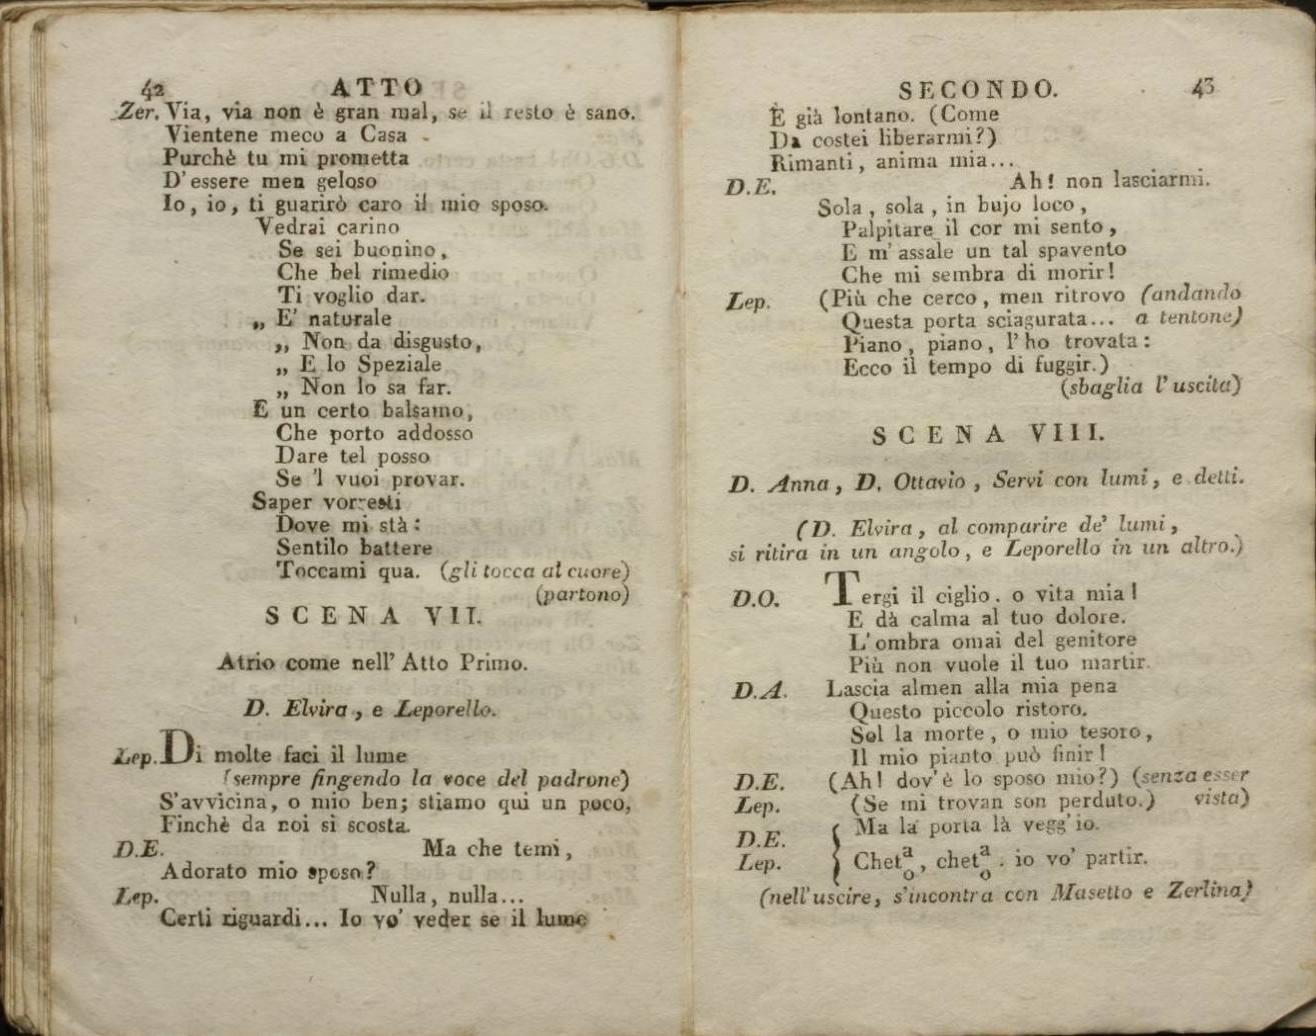 42 ATTO
Zer. Via, via non è gran mal, se il resto è sano.
Vientene meco a Casa
Purchè tu mi prometta
D'essere men geloso
Io, io, ti guarirò caro il mio sposo.
Vedrai carino
Se sei buonino,
Che bel rimedio
Ti voglio dar.
„ E' naturale
„ Non da disgusto,
„ E lo Speziale
„ Non lo sa far.
E un certo balsamo,
Che porto addosso
Dare tel posso
Se 'l vuoi provar.
Saper vorresti
Dove mi stà:
Sentilo battere
Toccami qua. (gli tocca al cuore)
(partono)
SCENA VII.
Atrio come nell' Atto Primo.
D. Elvira, e Leporello.
Lep. Di molte faci il lume
(sempre fingendo la voce del padrone)
S'avvicina, o mio ben; stiamo qui un poco,
Finchè da noi si scosta.
D.E. Ma che temi,
Adorato mio sposo?
Lep. Nulla, nulla...
Certi riguardi... Io vo' veder se il lume
SECONDO. 43
È già lontano. (Come
Da costei liberarmi?)
Rimanti, anima mia...
D.E. Ah! non lasciarmi.
Sola, sola, in bujo loco,
Palpitare il cor mi sento,
E m'assale un tal spavento
Che mi sembra di morir!
Lep. (Più che cerco, men ritrovo (andando
Questa porta sciagurata... a tentone)
Piano, piano, l'ho trovata:
Ecco il tempo di fuggir.)
(sbaglia l'uscita)
SCENA VIII.
D. Anna, D. Ottavio, Servi con lumi, e detti.
(D. Elvira, al comparire de' lumi,
si ritira in un angolo, e Leporello in un altro.)
D.O. Tergi il ciglio. o vita mia!
E dà calma al tuo dolore.
L'ombra omai del genitore
Più non vuole il tuo martir.
D.A. Lascia almen alla mia pena
Questo piccolo ristoro.
Sol la morte, o mio tesoro,
Il mio pianto può finir!
D.E. (Ah! dov'è lo sposo mio?) (senza esser
Lep. (Se mi trovan son perduto.) vista)
D.E. { Ma la porta là vegg'io.
Lep. Chet a o, chet a o. io vo' partir.
(nell'uscire, s'incontra con Masetto e Zerlina)